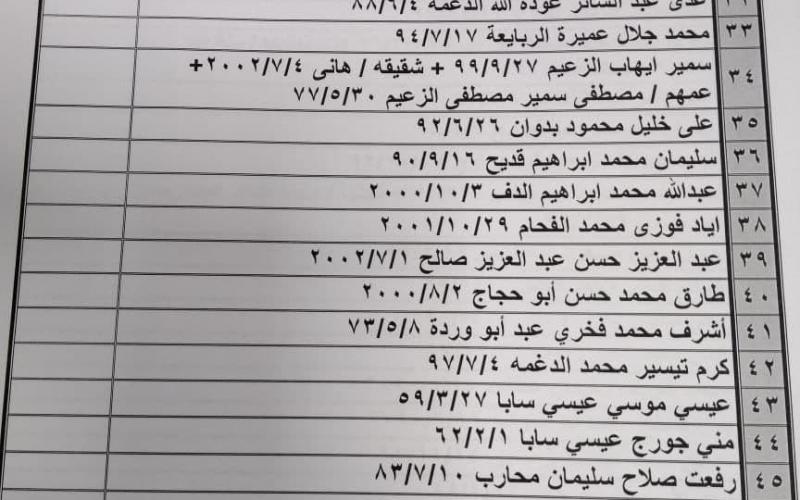 عبد الساتر عودة الله الدغمة ٨٨/٦/٤
٣٣ محمد جلال عميرة الربايعة ٩٤/٧/١٧
٣٤ سمير ايهاب الزعيم ٩٩/٩/٢٧ + شقيقه / هانى ٢٠٠٢/٧/٤+
عمهم / مصطفى سمير مصطفى الزعيم ٧٧/٥/٣٠
٣٥ على خليل محمود بدوان ٩٢/٦/٢٦
٣٦ سليمان محمد ابراهيم قديح ٩٠/٩/١٦
٣٧ عبدالله محمد ابراهيم الدف ٢٠٠٠/١٠/٣
٣٨ اياد فوزى محمد الفحام ٢٠٠١/١٠/٢٩
٣٩ عبد العزيز حسن عبد العزيز صالح ٢٠٠٢/٧/١
٤٠ طارق محمد حسن أبو حجاج ٢٠٠٠/٨/٢
٤١ أشرف محمد فخري عبد أبو وردة ٧٣/٥/٨
٤٢ كرم تيسير محمد الدغمه ٩٧/٧/٤
٤٣ عيسي موسي عيسي سابا ٥٩/٣/٢٧
٤٤ مني جورج عيسي سابا ٦٢/٢/١
٤٥ رفعت صلاح سليمان محارب ٨٣/٧/١٠